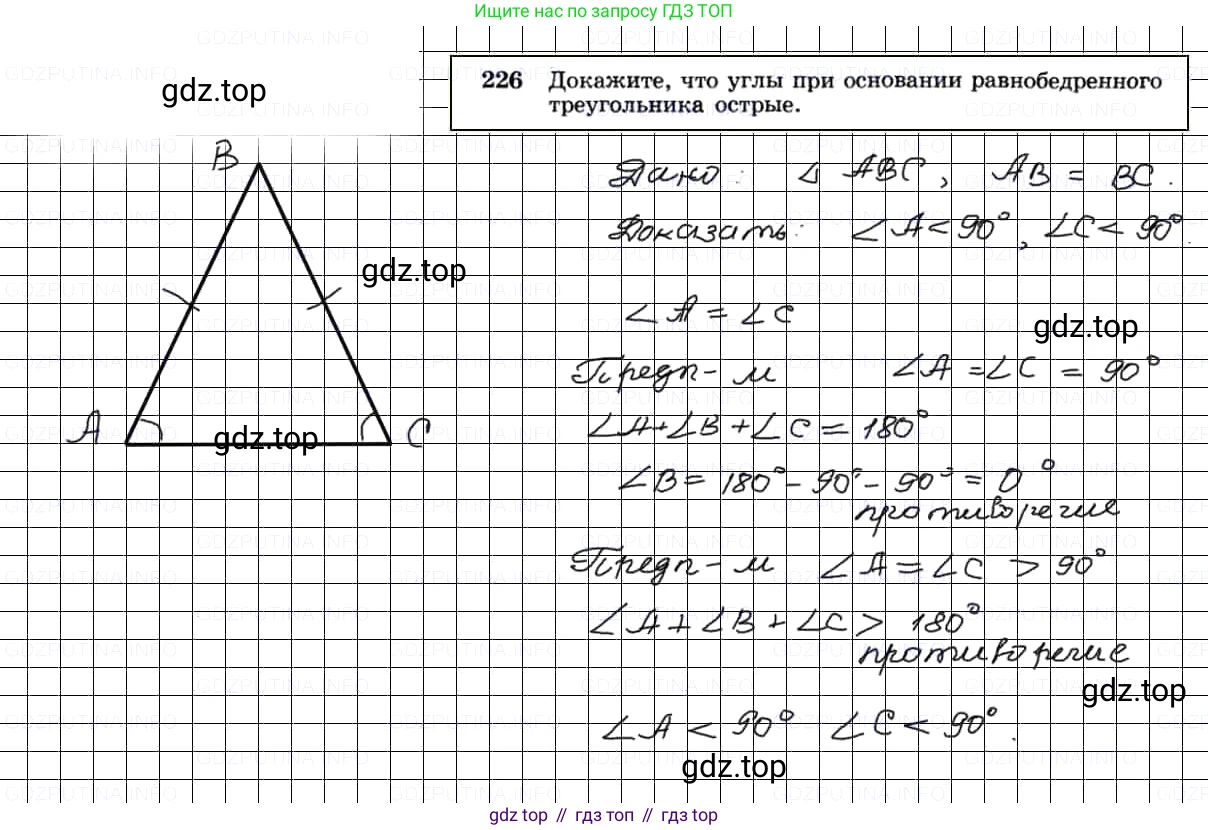 Ищите нас по запросу ГДЗ ТОП
226 Докажите, что углы при основании равнобедренного
треугольника острые.
gdz.top
B
Дано: Δ ABC, AB = BC.
Доказать: ∠A < 90°, ∠C < 90°.
gdz.top
∠A = ∠C
gdz.top
Предп-м ∠A = ∠C = 90°
A
C
gdz.top
∠A + ∠B + ∠C = 180°
∠B = 180° - 90° - 90° = 0°
противоречие
Предп-м ∠A = ∠C > 90°
∠A + ∠B + ∠C > 180°
противоречие
gdz.top
∠A < 90° ∠C < 90°.
gdz.top
gdz top // гдз топ // gdz top
GDZPUTINA.INFO